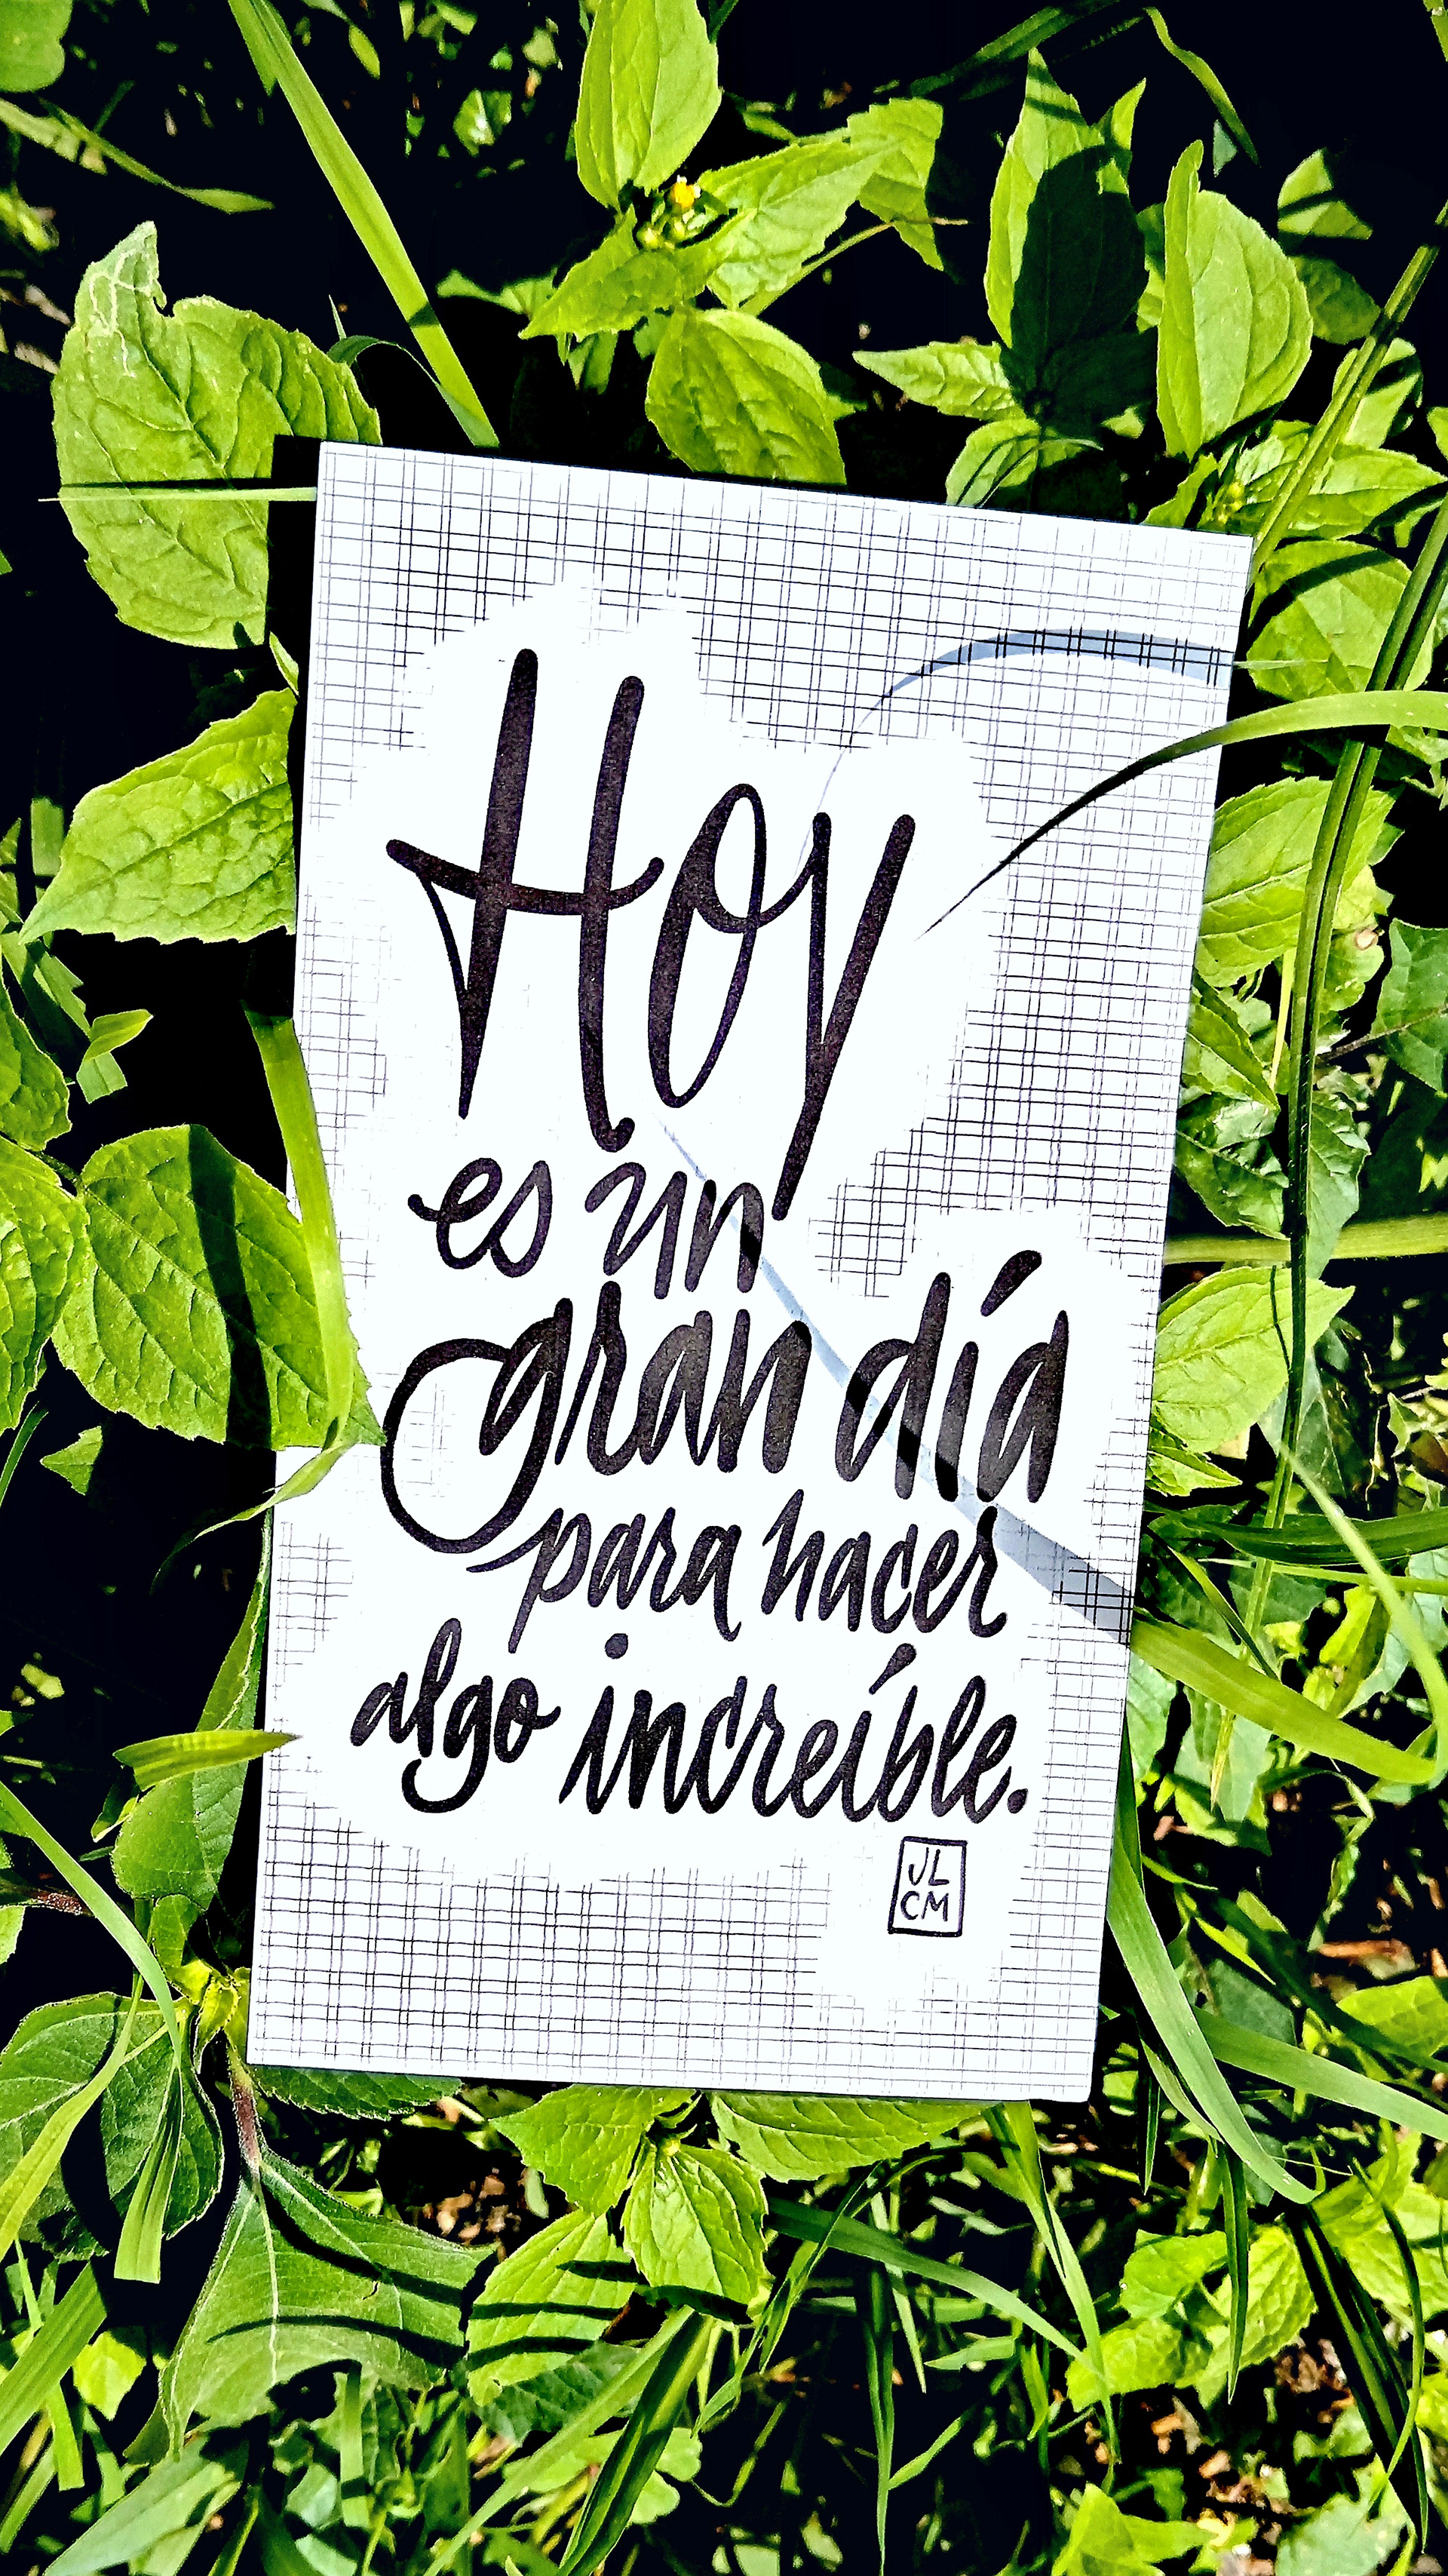 Hoy
es un
gran día
para hacer
algo increíble.
JL
CM